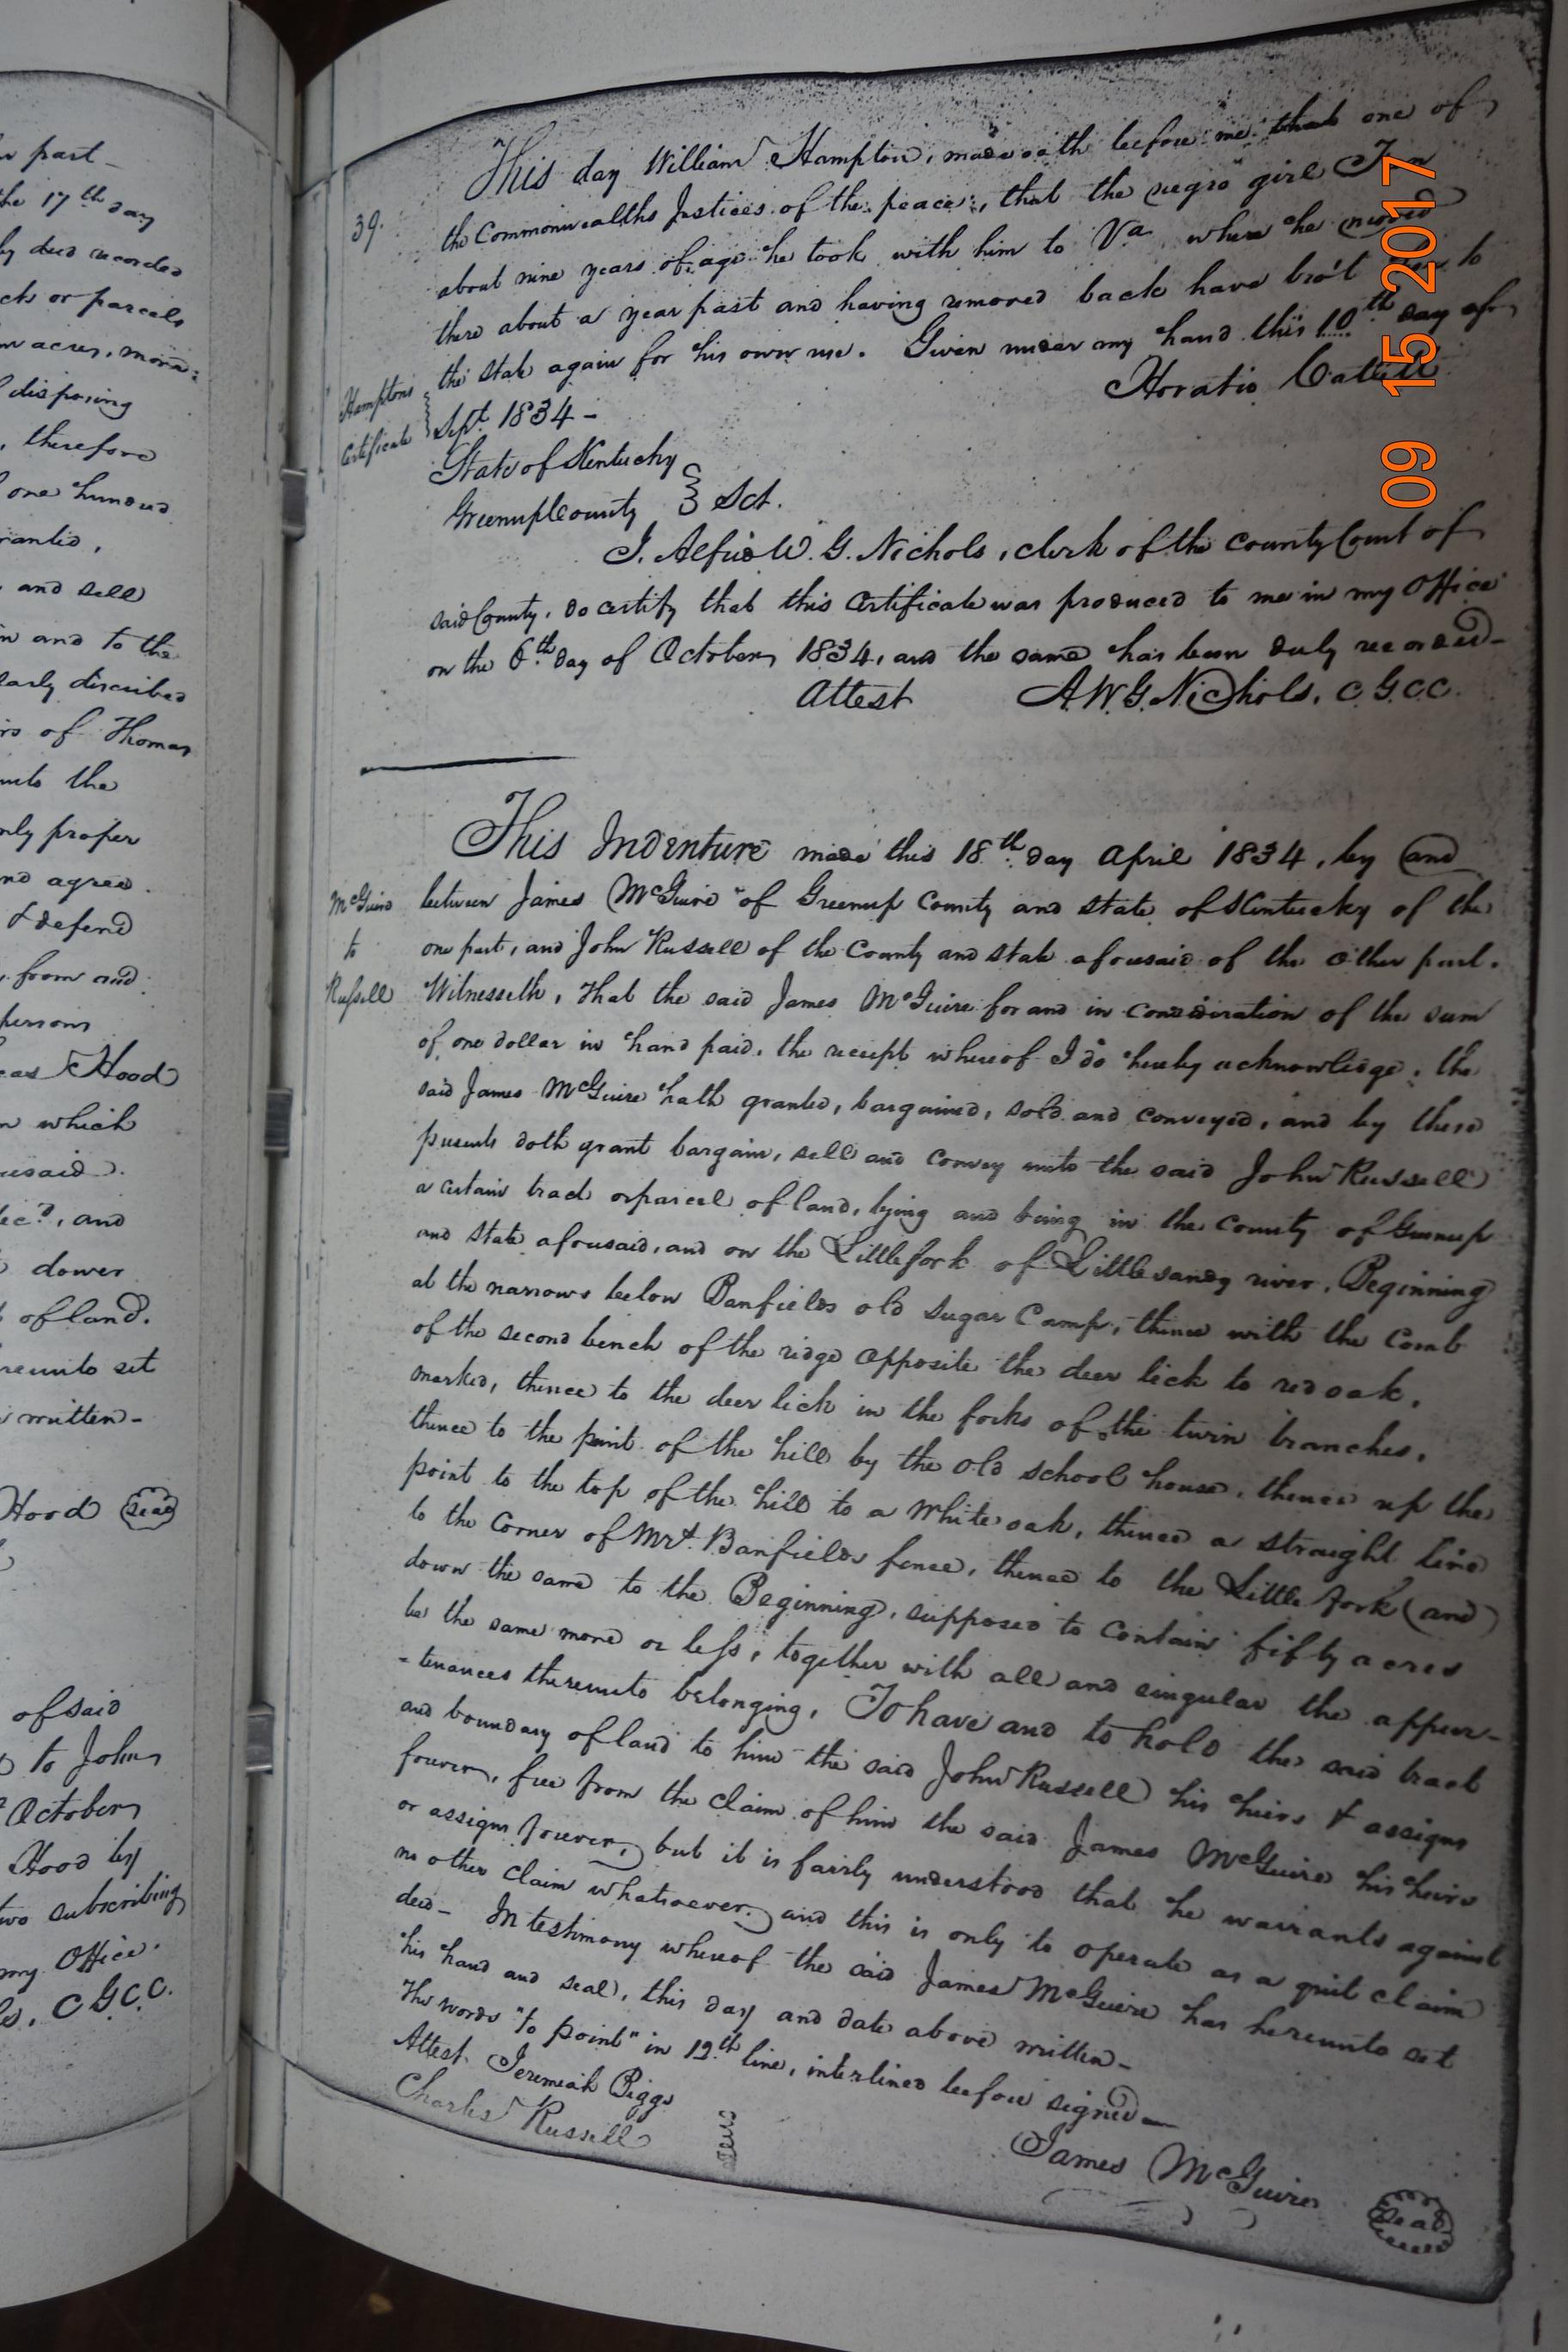 r part-
the 17th day
by deed recorded
ck or parcels
acres, more
disposing
, therefore
one hundred
ranted,
and sell
in and to the
larly discribed
rs of Thomas
unto the
nly proper
nd agree.
& defend
, from and
persons
Hood
n which
resaid.
dec'd, and
dower
of land.
reunto set
written-
Hood Seal
of said
to John
October
Hood by
two subscribing
my Office.
ls, C G C C.
39.
This day William Hampton, made oath before me that one of
the Commonwealths Justices of the peace, that the negro girl
about nine years of age he took with him to Va where he moved
there about a year past and having removed back have bro't her to
the state again for his own use. Given under my hand this 10th day of
Sept. 1834-
Horatio Catlett
Hamptons
Certificate
State of Kentucky
Greenup County Sct.
I. Alfred W. G. Nichols, clerk of the county Court of
said County, do certify that this Certificate was produced to me in my Office
on the 6th day of October, 1834, and the same has been duly recorded-
Attest A.W.G. Nichols, C G C C.
This Indenture made this 18th day April 1834, by and
McGuire
to
Russell
between James McGuire of Greenup County and state of Kentucky of the
one part, and John Russell of the County and state aforesaid of the other part.
Witnesseth, that the said James McGuire for and in consideration of the sum
of one dollar in hand paid, the receipt whereof I do hereby acknowledge, the
said James McGuire hath granted, bargained, sold and conveyed, and by these
presents doth grant bargain, sell and convey unto the said John Russell
a certain tract or parcel of land, lying and being in the County of Greenup
and state aforesaid, and on the Little fork of Little sandy river, Beginning
at the narrows below Banfields old sugar Camp, thence with the comb
of the second bench of the ridge opposite the deer lick to red oak,
marked, thence to the deer lick in the forks of the twin branches,
thence to the point of the hill by the old school house, thence up the
point to the top of the hill to a White oak, thence a straight line
to the corner of Mrs. Banfields fence, thence to the Little fork and
down the same to the Beginning, supposed to contain fifty acres
be the same more or less, together with all and singular the appur-
-tenances thereunto belonging, To have and to hold the said tract
and boundary of land to him the said John Russell his heirs & assigns
forever, free from the claim of him the said James McGuire his heirs
or assigns forever, but it is fairly understood that he warrants against
no other claim whatsoever, and this is only to operate as a quit claim
deed- In testimony whereof the said James McGuire has hereunto set
his hand and seal, this day and date above written-
The words "to point" in 12th line, interlined before signed-
Attest. Jeremiah Biggs
Charles Russell
James McGuire Seal
09 15 2017